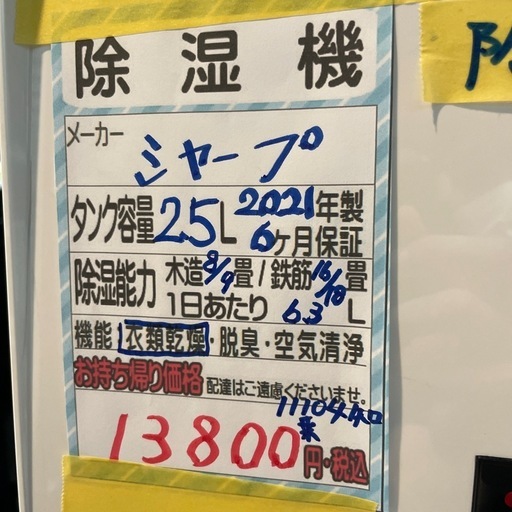 除湿機
メーカー
シャープ
タンク容量 2.5L 2021年製
6ヶ月保証
除湿能力 木造8/9畳/鉄筋16/18畳
1日あたり 6.3L
機能 衣類乾燥・脱臭・空気清浄
お持ち帰り価格 配達はご遠慮くださいませ。
13800円・税込